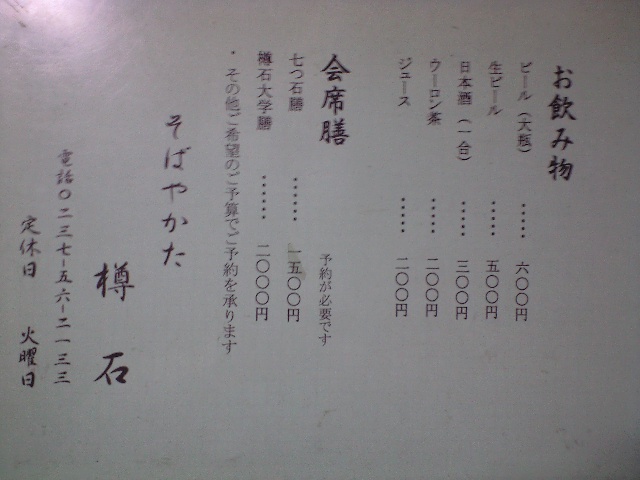 お飲み物
ビール（大瓶） ‥‥‥ 六〇〇円
生ビール ‥‥‥ 五〇〇円
日本酒（一合） ‥‥‥ 三〇〇円
ウーロン茶 ‥‥‥ 二〇〇円
ジュース ‥‥‥ 二〇〇円
会席膳 予約が必要です
七つ石膳 ‥‥‥ 一五〇〇円
樽石大学膳 ‥‥‥ 二〇〇〇円
・その他ご希望のご予算でご予約を承ります
そばやかた
樽石
電話〇二三七-五六-二一三三
定休日 火曜日